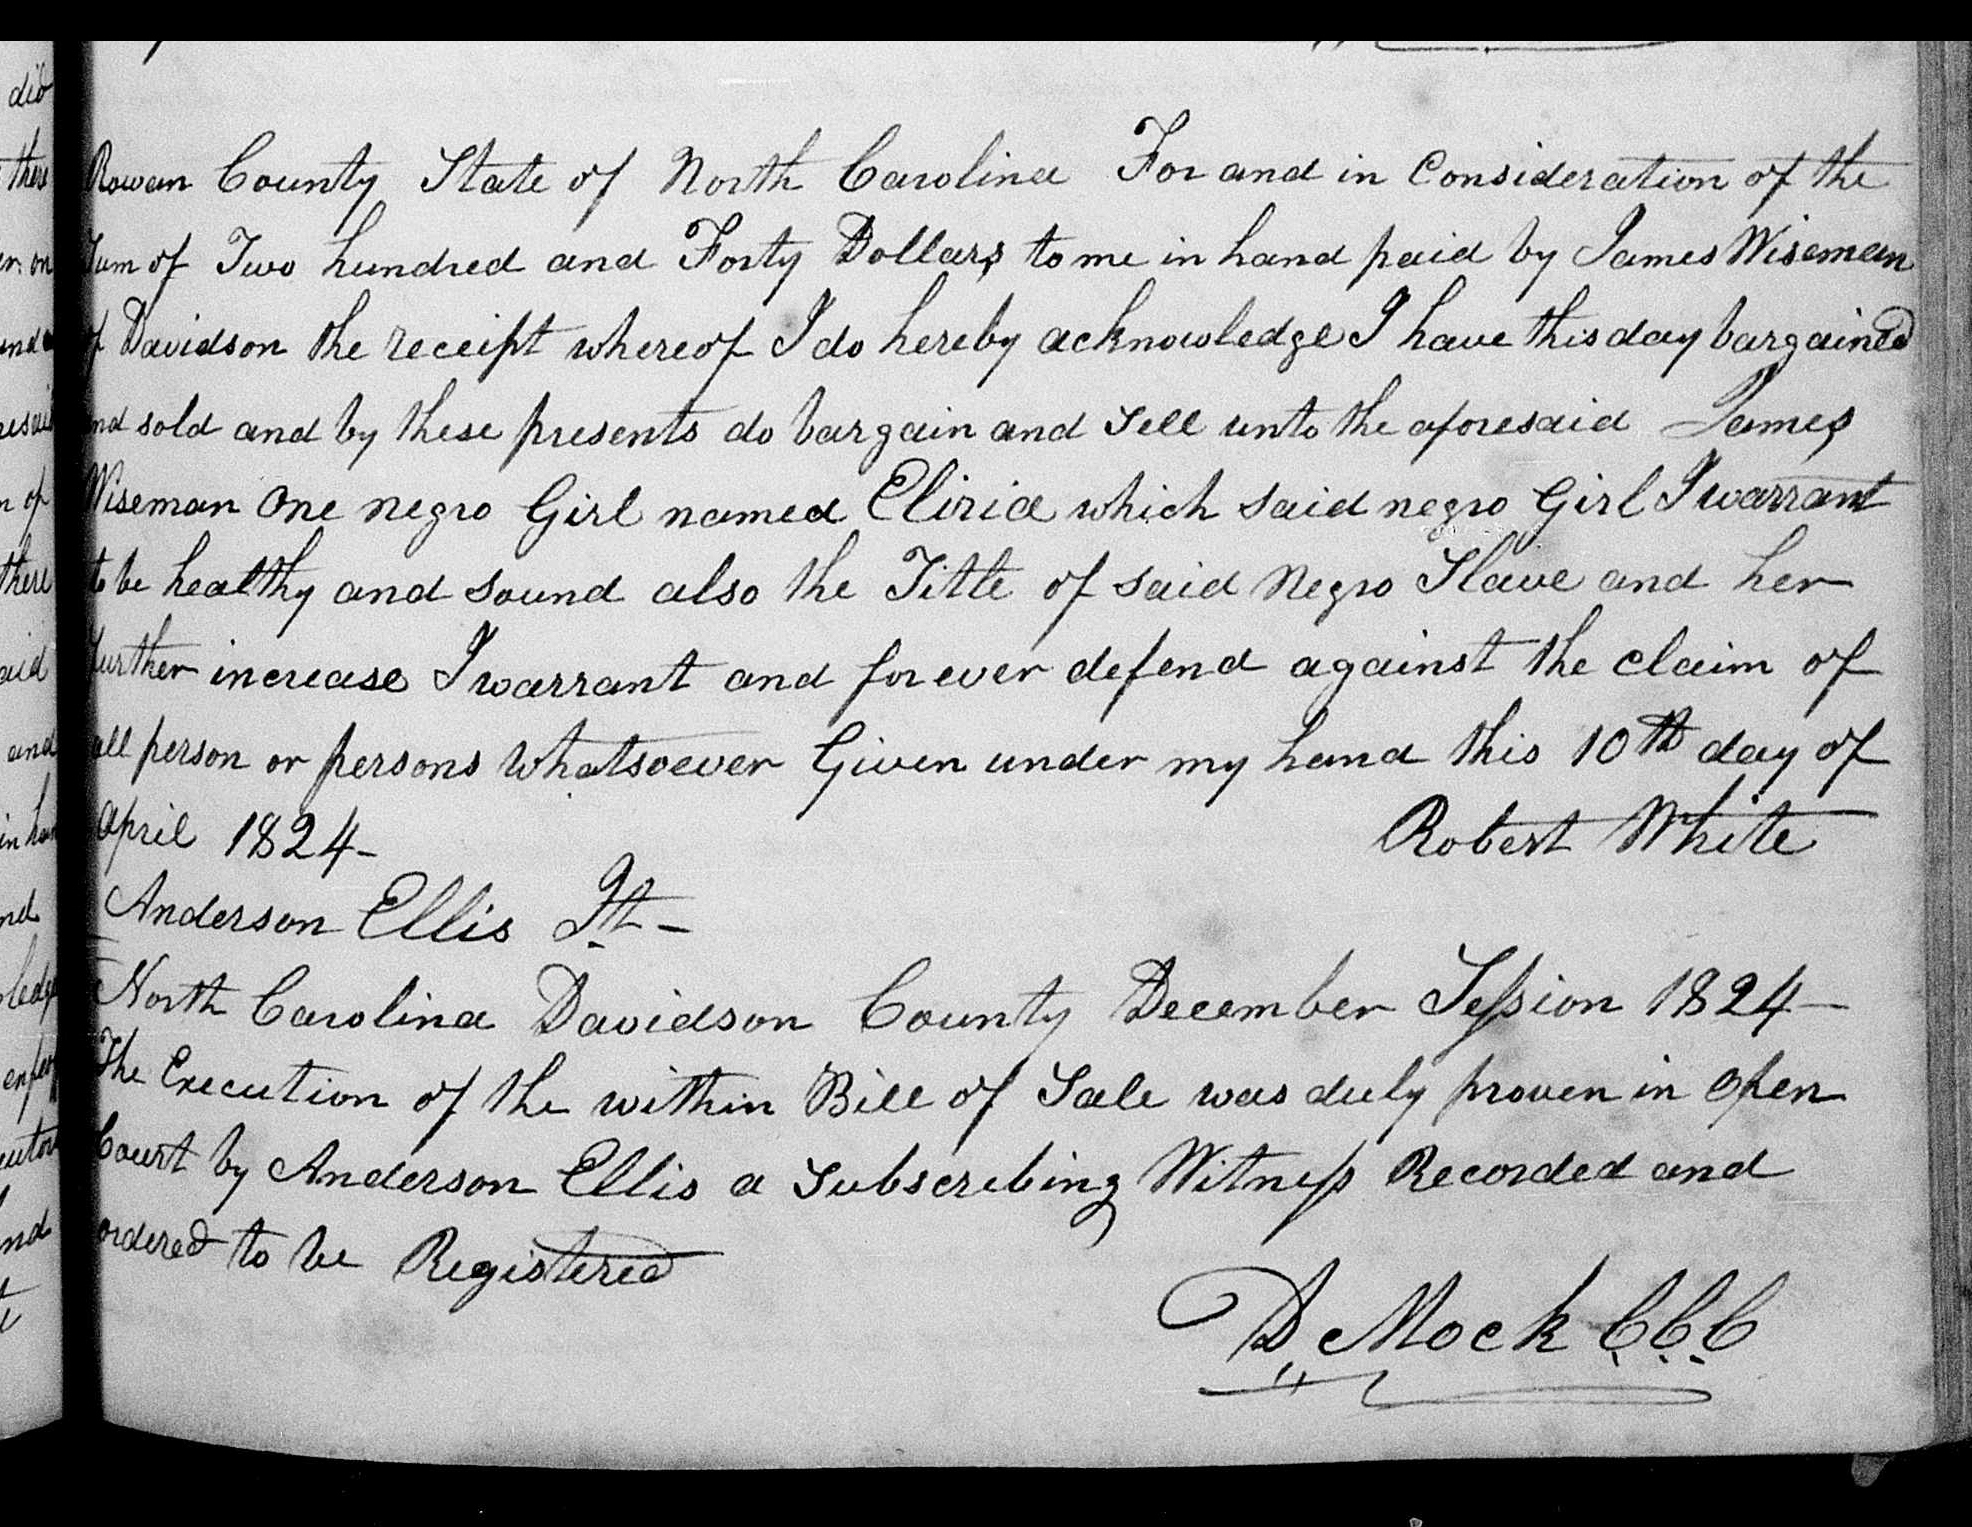 did
there
Rowan County State of North Carolina For and in Consideration of the
Sum of Two hundred and Forty Dollars to me in hand paid by James Wiseman
of Davidson the receipt whereof I do hereby acknowledge I have this day bargained
and sold and by these presents do bargain and Sell unto the aforesaid James
Wiseman One negro Girl named Eliria which said negro Girl I warrant
to be healthy and sound also the Title of said Negro Slave and her
further increase I warrant and forever defend against the claim of
all person or persons Whatsoever Given under my hand this 10th day of
April 1824-
Robert White
Anderson Ellis Jt-
North Carolina Davidson County December Session 1824-
The Execution of the within Bill of Sale was duly proven in Open
Court by Anderson Ellis a Subscribing Witness Recorded and
ordered to be Registered
D Mock C.C.C